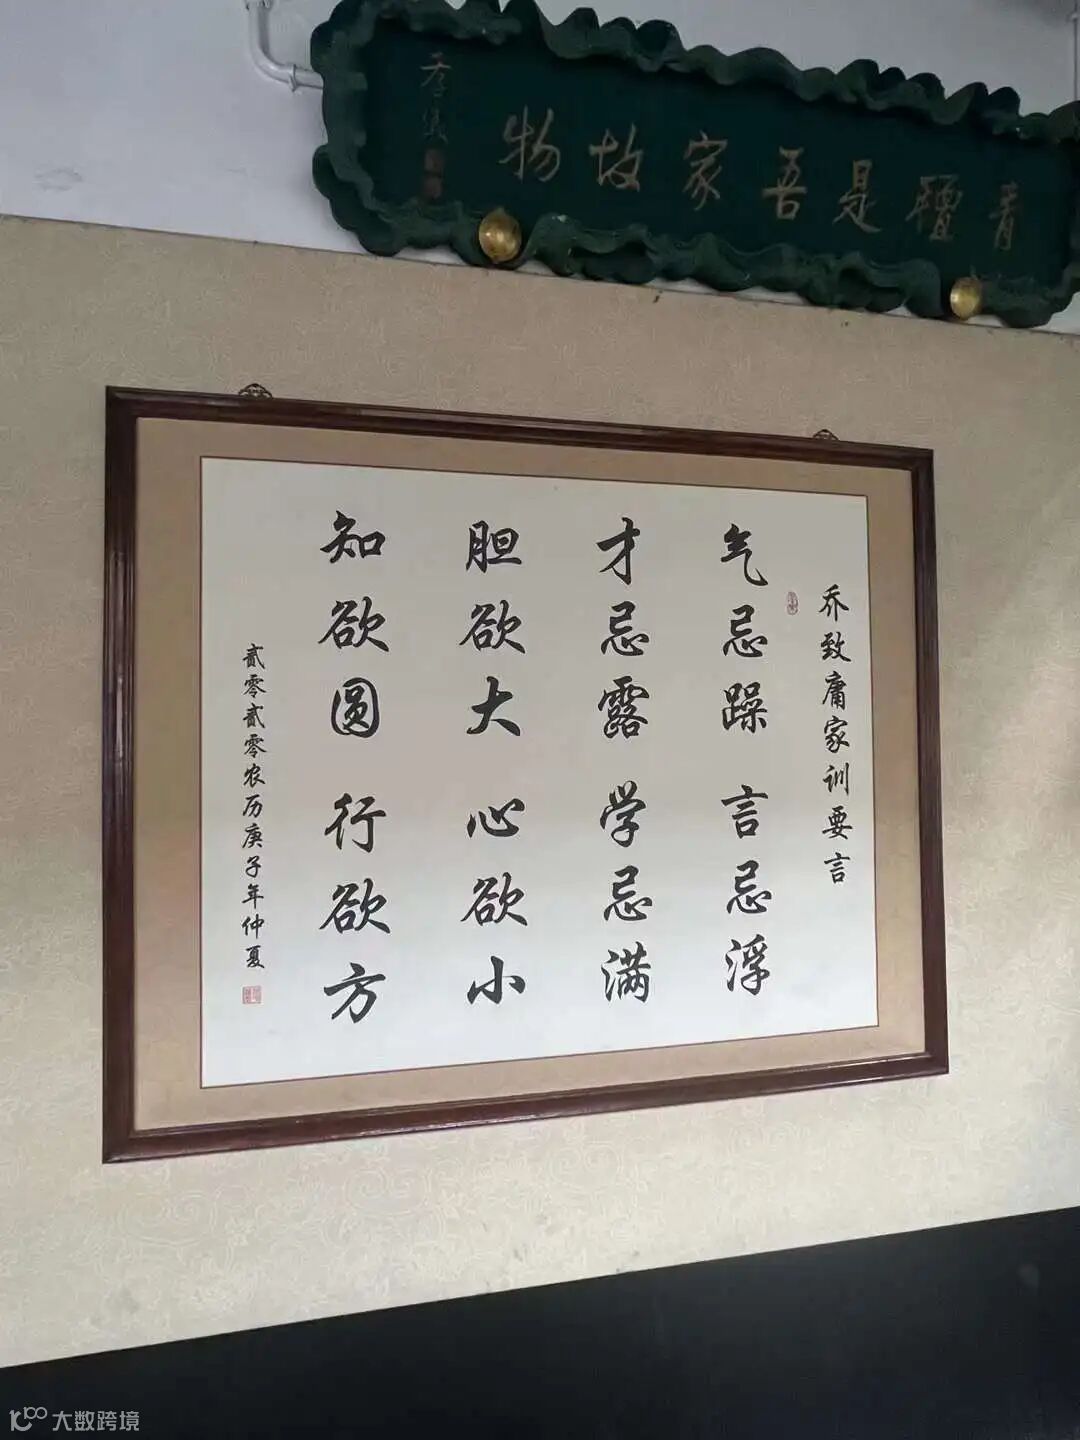 青氊是吾家故物
乔致庸家训要言
气忌躁 言忌浮
才忌露 学忌满
胆欲大 心欲小
知欲圆 行欲方
贰零贰零农历庚子年仲夏
大数跨境